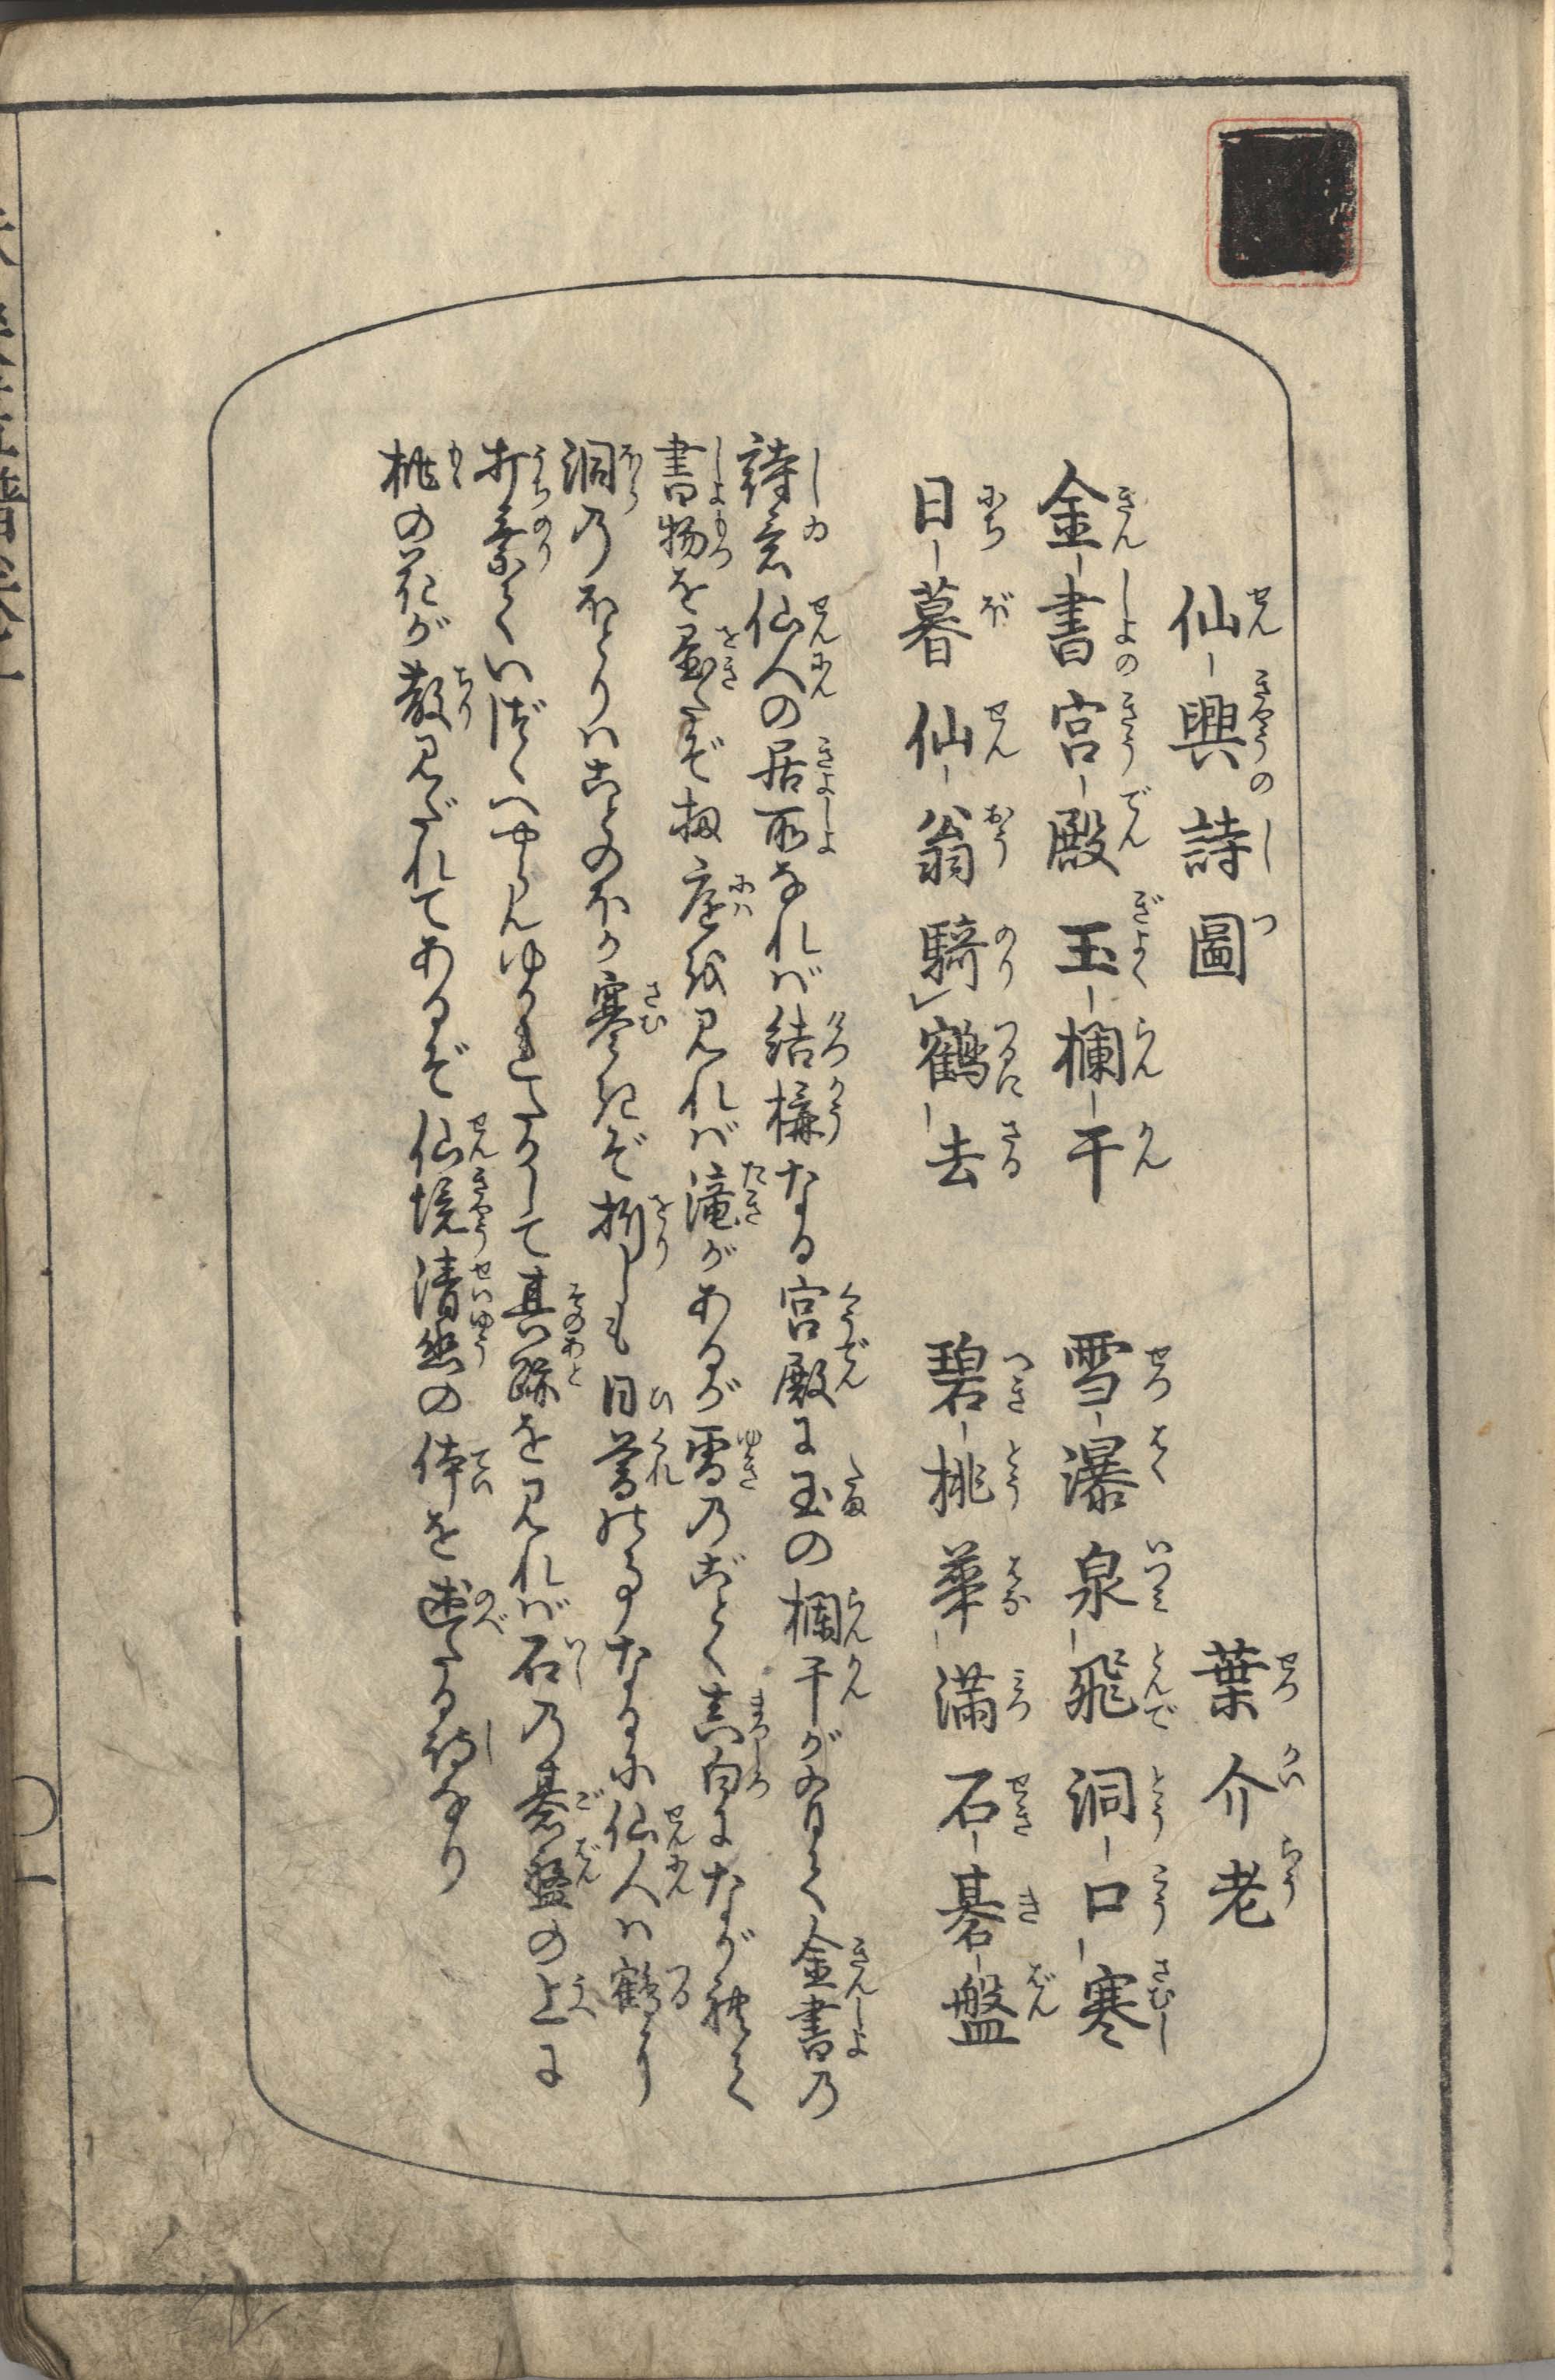 仙興詩圖　葉介老
金書宮殿玉欄干　雪瀑泉飛洞口寒
日暮仙翁騎鶴去　碧桃華滿石碁盤
詩意仙人の居所なれば結構なる宮殿に玉の欄干が有て金書乃
書物を置たぞ扨庭を見れば滝があるが雪乃ごとく真白にながれて
洞乃ほとりはことのほか寒きぞ折しも日暮たる事なるに仙人は鶴に
打乗ていづくへやらんゆかれたかして其跡を見れば石乃碁盤の上に
桃の花が散みだれてあるぞ仙境清幽の体を述たる詩なり